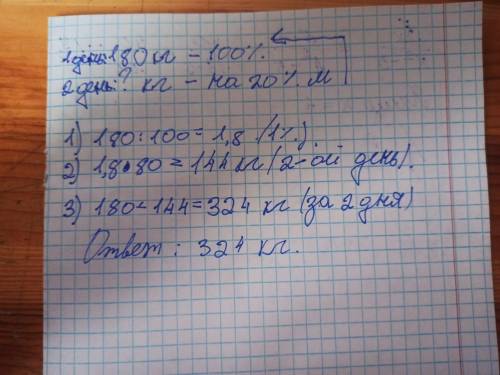 1 день: 180 кг - 100%.
2 день: ? кг - на 20% м
1) 180:100=1,8 (1%).
2) 1,8•80=144 кг (2-ой день).
3) 180+144=324 кг (за 2 дня)
Ответ: 324 кг.